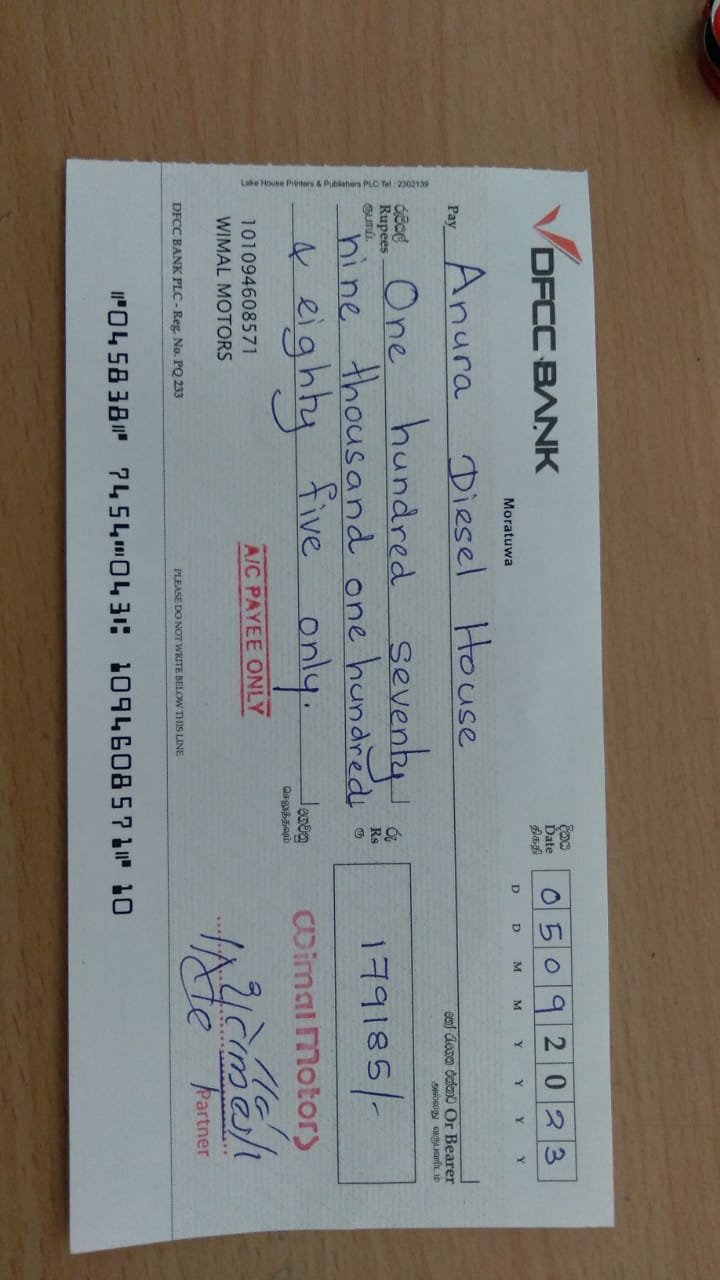 DFCC BANK
Moratuwa
දිනය
Date
திகதி
0 5 0 9 2 0 2 3
D D M M Y Y Y Y
Pay Anura Diesel House
හෝ රැගෙන එන්නාට Or Bearer
அல்லது வருபவரிடம்
රුපියල්
Rupees One hundred seventy
ரூபாய்
nine thousand one hundred
& eighty five only.
රු
Rs
ரூ
179185/-
ගෙවනු
செலுத்தவும்
101094608571
WIMAL MOTORS
A/C PAYEE ONLY
Wimal Motors
Partner
DFCC BANK PLC - Reg. No. PQ 233
PLEASE DO NOT WRITE BELOW THIS LINE
⑈045838⑈ 7454⑉043⑆ 109460857 1⑈ 10
Lake House Printers & Publishers PLC Tel : 2302139